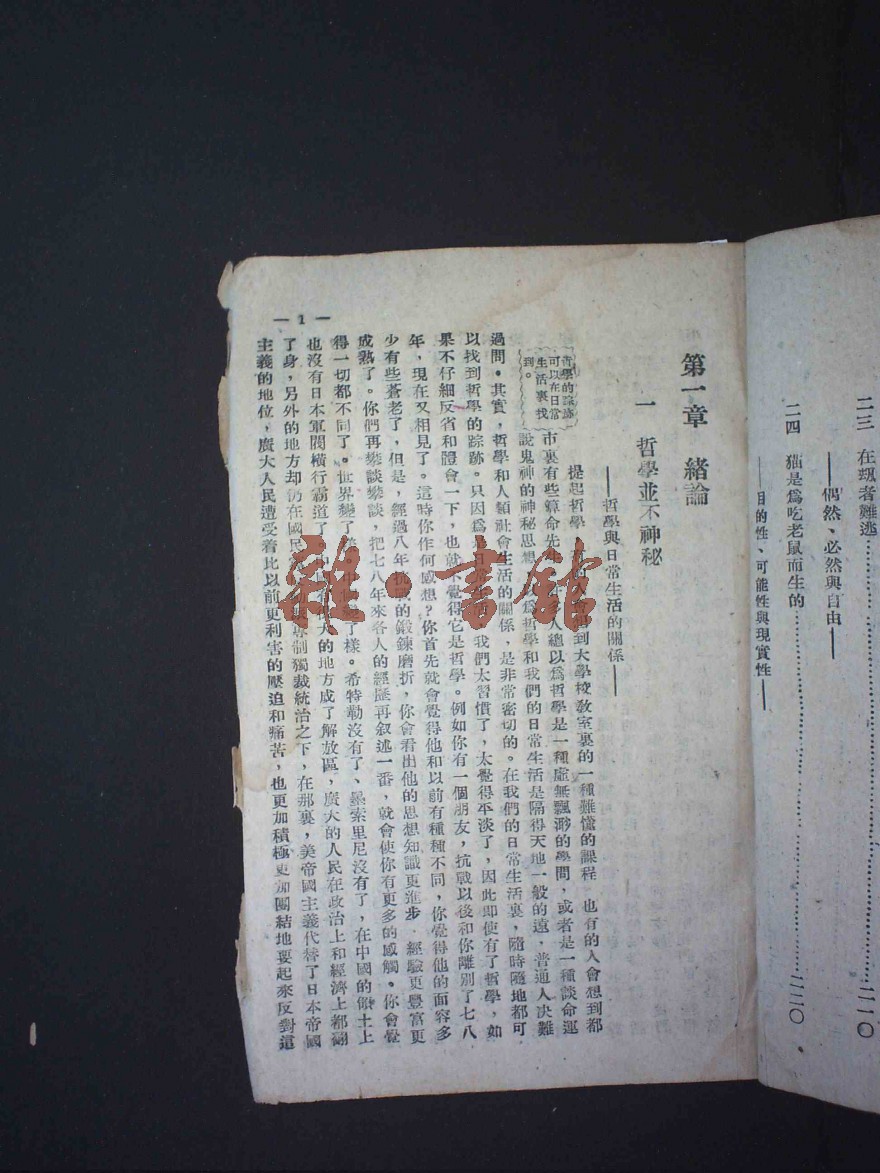 二三 在
難逃
二一〇
——偶然、必然與自由——
二四 猫是爲吃老鼠而生的
二二〇
——目的性、可能性與現實性——
第一章 緒論
一 哲學並不神秘
——哲學與日常生活的關係——
哲學的踪跡
可以在日常
生活裏找
到。
提起哲學
的人會想到大學校教室裏的一種難懂的課程
也有的人會想到都
市裏有些算命先生
多人總以爲哲學是一種虛無飄渺的學問，或者是一種談命運
說鬼神的神秘思想
以爲哲學和我們的日常生活是隔得天地一般的遠，普通人決難
過問。其實，哲學和人類社會生活的關係，是非常密切的。在我們的日常生活裏，隨時隨地都可
以找到哲學的踪跡。只因爲
日常生活
我們太習慣了，太覺得平淡了，因此卽使有了哲學，如
果不仔細反省和體會一下，也就不覺得它是哲學。例如你有一個朋友，抗戰以後和你離別了七八
年，現在又相見了。這時你作何感想？你首先就會覺得他和以前有種種不同，你覺得他的面容多
少有些蒼老了，但是，經過八年抗戰的鍛鍊磨折，你會看出他的思想知識更進步
經驗更豐富更
成熟了。你們再談談，把七八年來各人的經歷再叙述一番，就會使你有更多的感觸。你會覺
得一切都不同了。世界變了
了樣。希特勒沒有了、墨索里尼沒有了，在中國的領土上
也沒有日本軍閥橫行霸道了
大的地方成了解放區，廣大的人民在政治上和經濟上都翻
了身，另外的地方却仍在國民
專制獨裁統治之下，在那裏，美帝國主義代替了日本帝國
主義的地位，廣大人民遭受着比以前更利害的壓迫和痛苦，也更加積極更加團結地要起來反對這
— 1 —
雜·書館